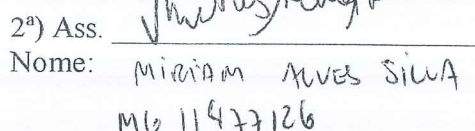 2ª) Ass.
Nome: MIRIAM ALVES SILVA
MG 11477126